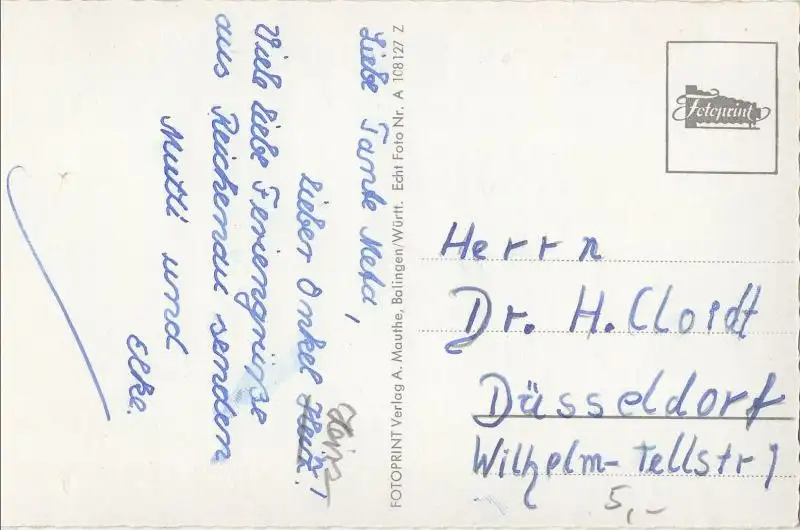 Liebe Tante Meta,
lieber Onkel Hein!
Heinz
Viele liebe Feriengrüße
aus Reichenau senden
Mutti und
Elke.
FOTOPRINT Verlag A. Mauthe, Balingen/Württ. Echt Foto Nr. A 108127 Z
Fotoprint
Herrn
Dr. H. Cloidt
Düsseldorf
Wilhelm-Tellstr 1
5,-